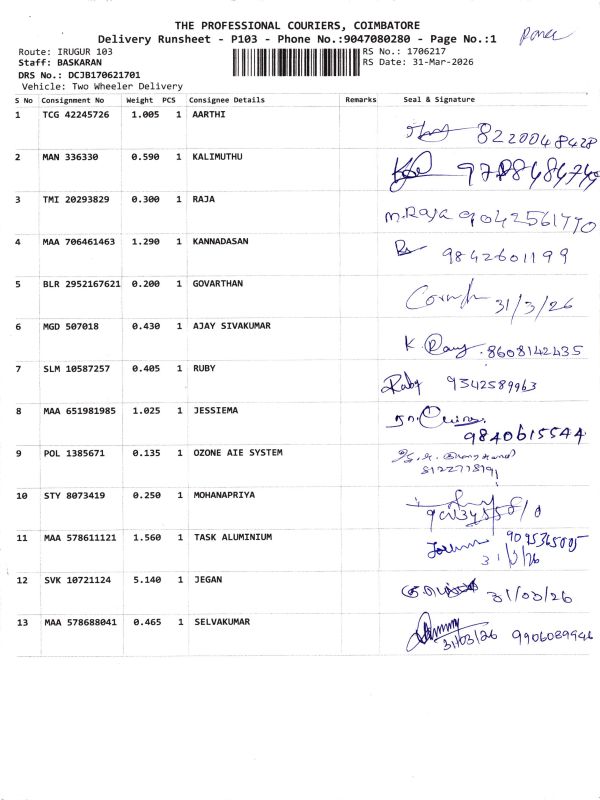 THE PROFESSIONAL COURIERS, COIMBATORE
Delivery Runsheet - P103 - Phone No.:9047080280 - Page No.:1
Route: IRUGUR 103 RS No.: 1706217
Staff: BASKARAN RS Date: 31-Mar-2026
DRS No.: DCJB170621701
Vehicle: Two Wheeler Delivery
S No Consignment No Weight PCS Consignee Details Remarks Seal & Signature
1 TCG 42245726 1.005 1 AARTHI
8220048428
2 MAN 336330 0.590 1 KALIMUTHU
3 TMI 20293829 0.300 1 RAJA
M.Raja 9042561770
4 MAA 706461463 1.290 1 KANNADASAN
9842601199
5 BLR 2952167621 0.200 1 GOVARTHAN
31/3/26
6 MGD 507018 0.430 1 AJAY SIVAKUMAR
K 8608142435
7 SLM 10587257 0.405 1 RUBY
Ruby 9342589963
8 MAA 651981985 1.025 1 JESSIEMA
9840615544
9 POL 1385671 0.135 1 OZONE AIE SYSTEM
10 STY 8073419 0.250 1 MOHANAPRIYA
11 MAA 578611121 1.560 1 TASK ALUMINIUM
9095365005
12 SVK 10721124 5.140 1 JEGAN
31/03/26
13 MAA 578688041 0.465 1 SELVAKUMAR
31/03/26 9906089946